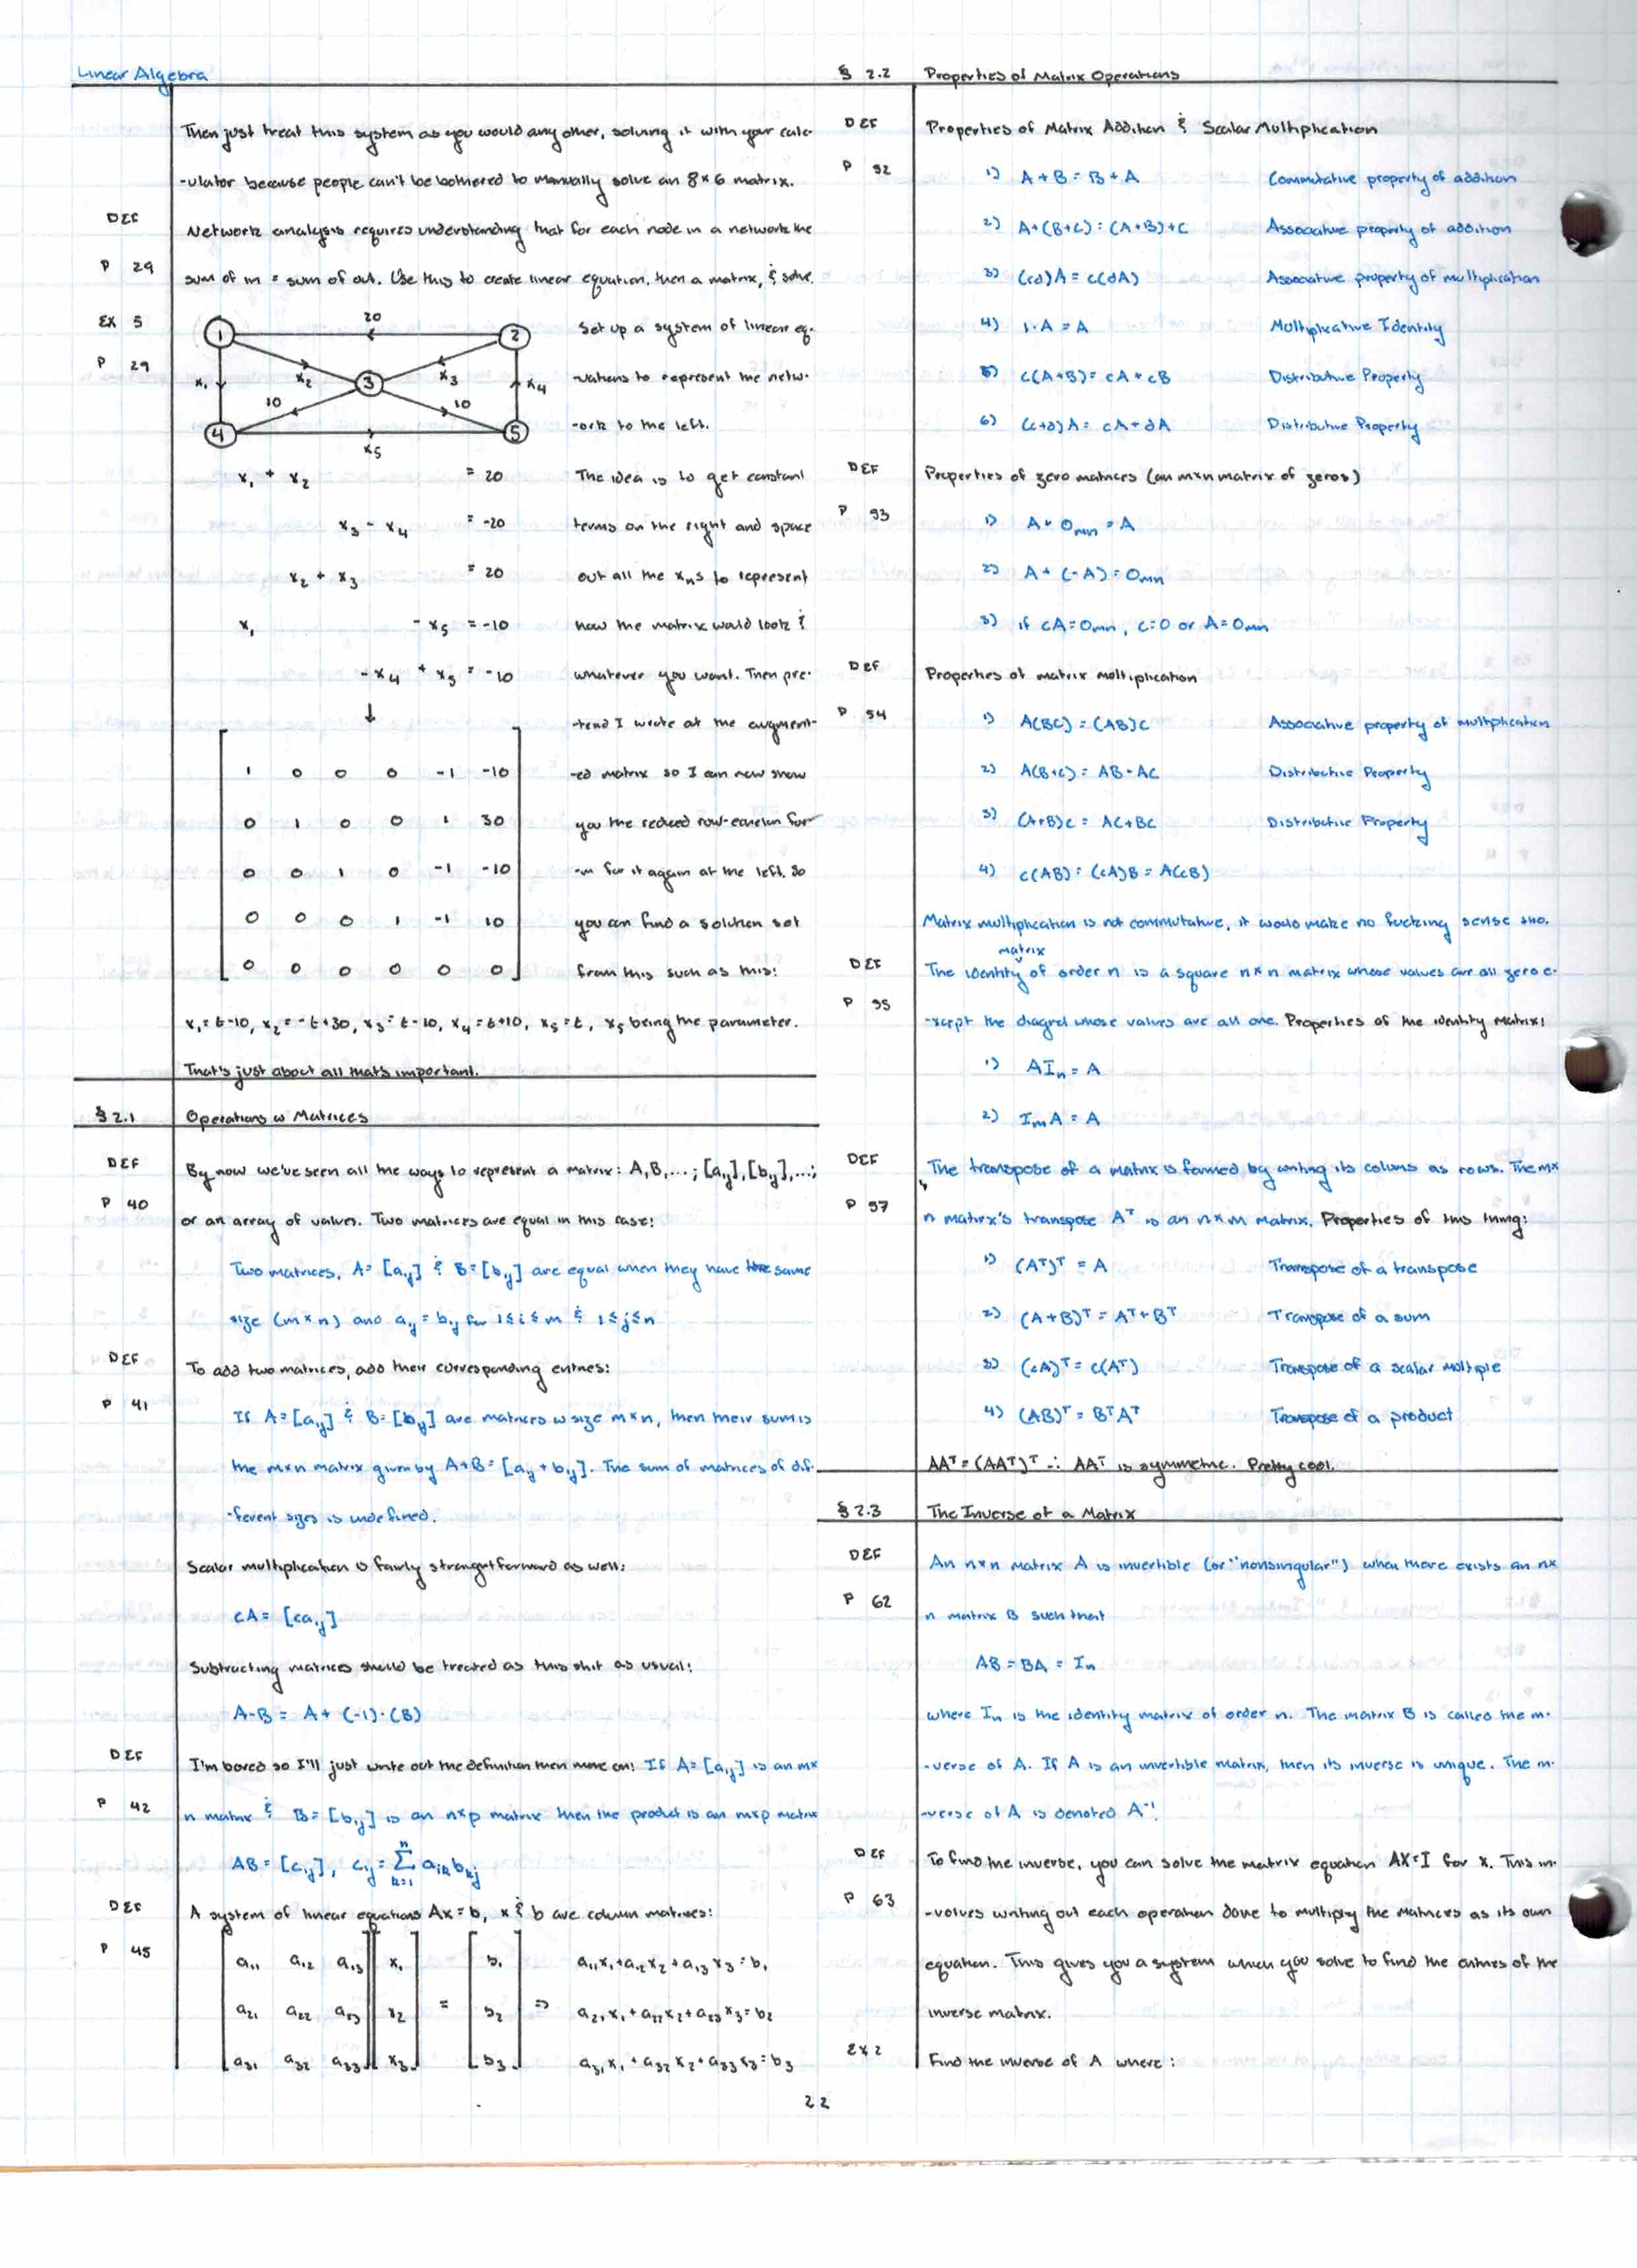 Linear Algebra
Then just treat this system as you would any other, solving it with your calc-
-ulator because people can't be bothered to manually solve an 8×6 matrix.
DEF Network analysis requires understanding that for each node in a network the
P 29 sum of in = sum of out. Use this to create linear equation, then a matrix, & solve.
EX 5
P 29
1 20 2
x₁ x₂ 3 x₃ x₄
10 10
4 x₅ 5
Set up a system of linear eq-
-uations to represent the netw-
-ork to the left.
x₁ + x₂ = 20 The idea is to get constant
x₃ - x₄ = -20 terms on the right and space
x₂ + x₃ = 20 out all the xₙs to represent
x₁ - x₅ = -10 how the matrix would look &
-x₄ + x₅ = -10 whatever you want. Then pre-
↓ -tend I wrote at the augment-
1 0 0 0 -1 -10 -ed matrix so I can now show
0 1 0 0 1 30 you the reduced row-echelon for-
0 0 1 0 -1 -10 -m for it again at the left. So
0 0 0 1 -1 10 you can find a solution set
0 0 0 0 0 0 from this such as this:
x₁ = t-10, x₂ = -t+30, x₃ = t-10, x₄ = t+10, x₅ = t, x₅ being the parameter.
That's just about all that's important.
§ 2.1 Operations w Matrices
DEF By now we've seen all the ways to represent a matrix: A, B, ...; [aᵢⱼ], [bᵢⱼ], ...;
P 40 or an array of values. Two matrices are equal in this case:
Two matrices, A = [aᵢⱼ] & B = [bᵢⱼ] are equal when they have the same
size (m×n) and aᵢⱼ = bᵢⱼ for 1≤i≤m & 1≤j≤n
DEF To add two matrices, add their corresponding entries:
P 41 If A = [aᵢⱼ] & B = [bᵢⱼ] are matrices w size m×n, then their sum is
the m×n matrix given by A+B = [aᵢⱼ + bᵢⱼ]. The sum of matrices of dif-
-ferent sizes is undefined.
Scalar multiplication is fairly straightforward as well:
cA = [caᵢⱼ]
Subtracting matrices should be treated as this shit as usual:
A-B = A + (-1)·(B)
DEF I'm bored so I'll just write out the definition then move on: If A = [aᵢⱼ] is an m×
P 42 n matrix & B = [bᵢⱼ] is an n×p matrix then the product is an m×p matrix
AB = [cᵢⱼ], cᵢⱼ = Σⁿₖ₌₁ aᵢₖbₖⱼ
DEF A system of linear equations Ax = b, x & b are column matrices:
P 45 a₁₁ a₁₂ a₁₃ x₁ b₁ a₁₁x₁+a₁₂x₂+a₁₃x₃ = b₁
a₂₁ a₂₂ a₂₃ x₂ = b₂ ⇒ a₂₁x₁+a₂₂x₂+a₂₃x₃ = b₂
a₃₁ a₃₂ a₃₃ x₃ b₃ a₃₁x₁+a₃₂x₂+a₃₃x₃ = b₃
§ 2.2 Properties of Matrix Operations
DEF Properties of Matrix Addition & Scalar Multiplication
P 52 1) A+B = B+A Commutative property of addition
2) A+(B+C) = (A+B)+C Associative property of addition
3) (cd)A = c(dA) Associative property of multiplication
4) 1·A = A Multiplicative Identity
5) c(A+B) = cA+cB Distributive Property
6) (c+d)A = cA+dA Distributive Property
DEF Properties of zero matrices (an m×n matrix of zeros)
P 53 1) A+0ₘₙ = A
2) A+(-A) = 0ₘₙ
3) if cA = 0ₘₙ, c=0 or A=0ₘₙ
DEF Properties of matrix multiplication
P 54 1) A(BC) = (AB)C Associative property of multiplication
2) A(B+C) = AB+AC Distributive Property
3) (A+B)C = AC+BC Distributive Property
4) c(AB) = (cA)B = A(cB)
Matrix multiplication is not commutative, it would make no fucking sense tho.
DEF The identity matrix of order n is a square n×n matrix whose values are all zero e-
P 55 -xcept the diagnol whose values are all one. Properties of the identity matrix:
1) AIₙ = A
2) IₘA = A
DEF The transpose of a matrix is formed by writing its colums as rows. The m×
P 57 n matrix's transpose Aᵀ is an n×m matrix. Properties of this thing:
1) (Aᵀ)ᵀ = A Transpose of a transpose
2) (A+B)ᵀ = Aᵀ+Bᵀ Transpose of a sum
3) (cA)ᵀ = c(Aᵀ) Transpose of a scalar multiple
4) (AB)ᵀ = BᵀAᵀ Transpose of a product
AAᵀ = (AAᵀ)ᵀ ∴ AAᵀ is symmetric. Pretty cool.
§ 2.3 The Inverse of a Matrix
DEF An n×n matrix A is invertible (or "nonsingular") when there exists an n×
P 62 n matrix B such that
AB = BA = Iₙ
where Iₙ is the identity matrix of order n. The matrix B is called the in-
-verse of A. If A is an invertible matrix, then its inverse is unique. The in-
-verse of A is denoted A⁻¹.
DEF To find the inverse, you can solve the matrix equation AX=I for X. This in-
P 63 -volves writing out each operation done to multiply the matrices as its own
equation. This gives you a system which you solve to find the entries of the
inverse matrix.
EX 2 Find the inverse of A where:
22